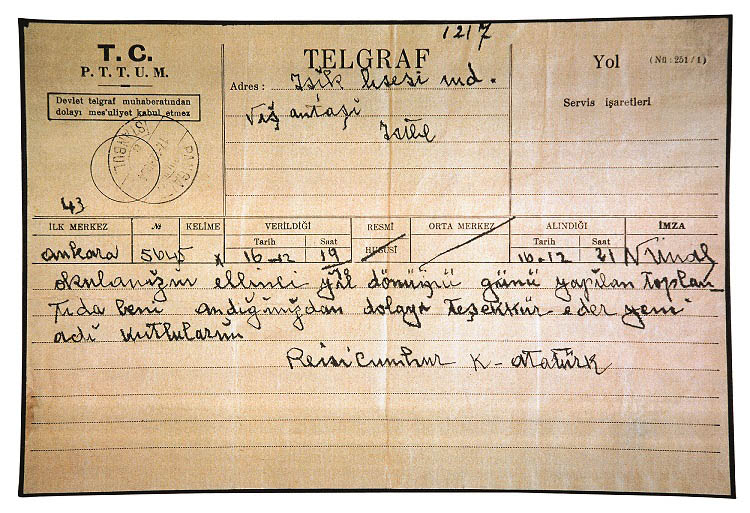 1217
T. C.
P. T. T. U. M.
Devlet telgraf muhaberatından
dolayı mes'uliyet kabul etmez
TELGRAF
Adres : Işık lisesi md.
Nişantaşi
Istbl
Yol
(Nü : 251 / 1)
Servis işaretleri
İSTANBUL
43
İLK MERKEZ № KELİME VERİLDİĞİ RESMİ ORTA MERKEZ ALINDIĞI İMZA
Tarih Saat HUSUSİ Tarih Saat
ankara 5645 16-12 19 16-12 21
okulanızın ellinci yıl dönüşü günü yapılan toplan
tıda beni andığınızdan dolayı teşekkür eder yeni
adı kutlularım
Reisicumhur K-atatürk